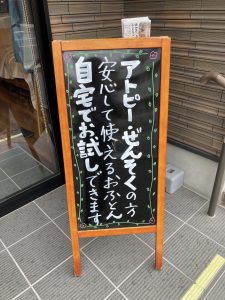 アトピー・ぜんそくの方
安心して使えるおふとん
自宅でお試しできます